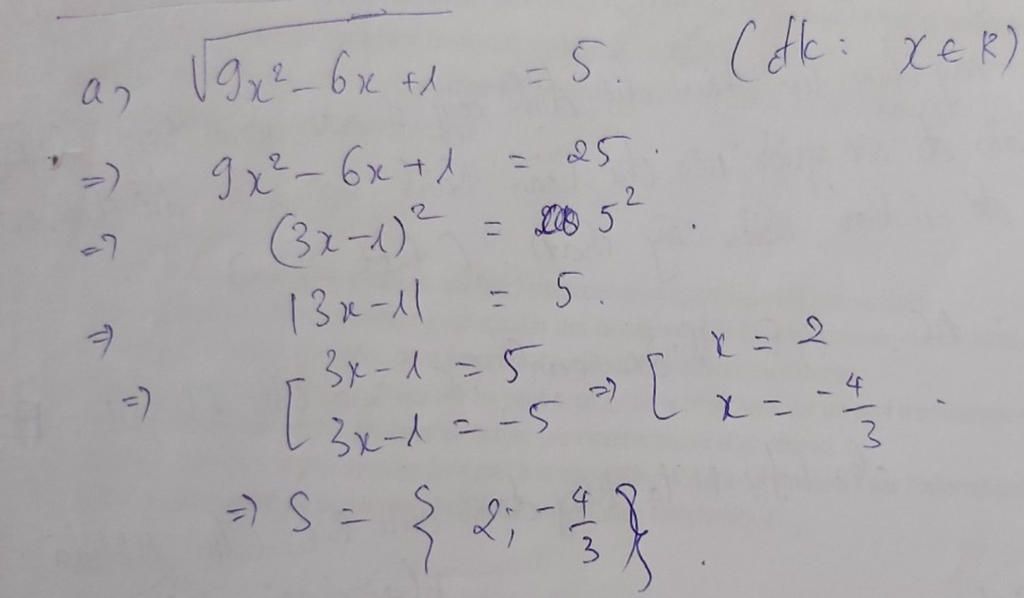 a, √(9x² - 6x + 1) = 5. (đk: x ∈ R)
=> 9x² - 6x + 1 = 25.
=> (3x - 1)² = 5².
=> |3x - 1| = 5.
=> [ 3x - 1 = 5 => [ x = 2
3x - 1 = -5 x = -4/3.
=> S = { 2; -4/3 }.